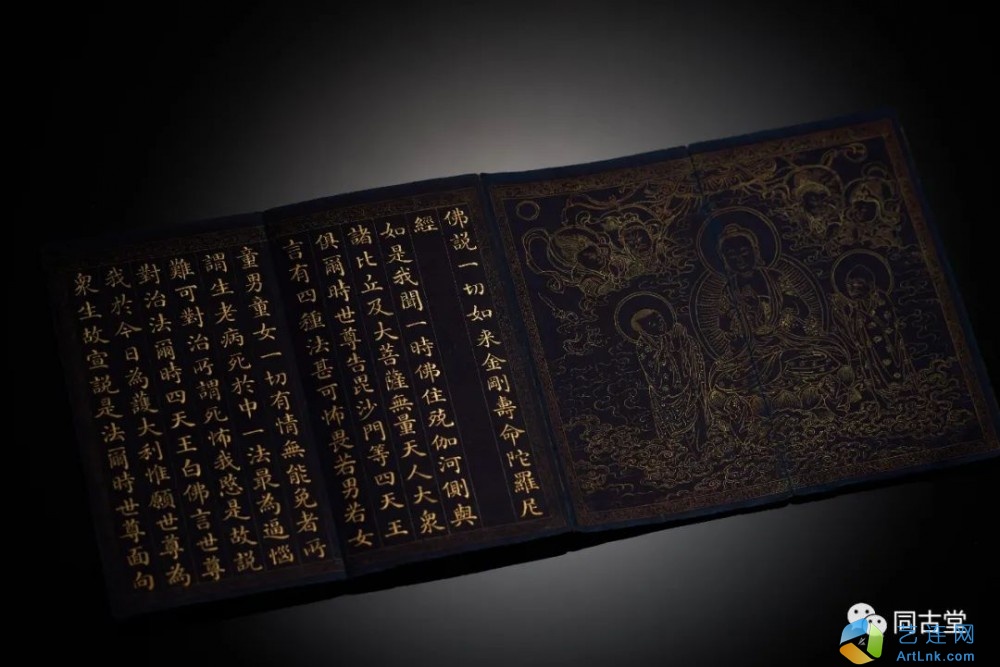 佛說一切如来金剛壽命陀羅尼
經
如是我聞一時佛住殑伽河側與
諸比丘及大菩薩無量天人大衆
俱爾時世尊告毘沙門等四天王
言有四種法甚可怖畏若男若女
童男童女一切有情無能免者所
謂生老病死於中一法最為逼惱
難可對治所謂死怖我愍是故說
對治法爾時四天王白佛言世尊
我於今日為護大利惟願世尊為
衆生故宣說是法爾時世尊面向
同古堂
艺连网
ArtLnk.com